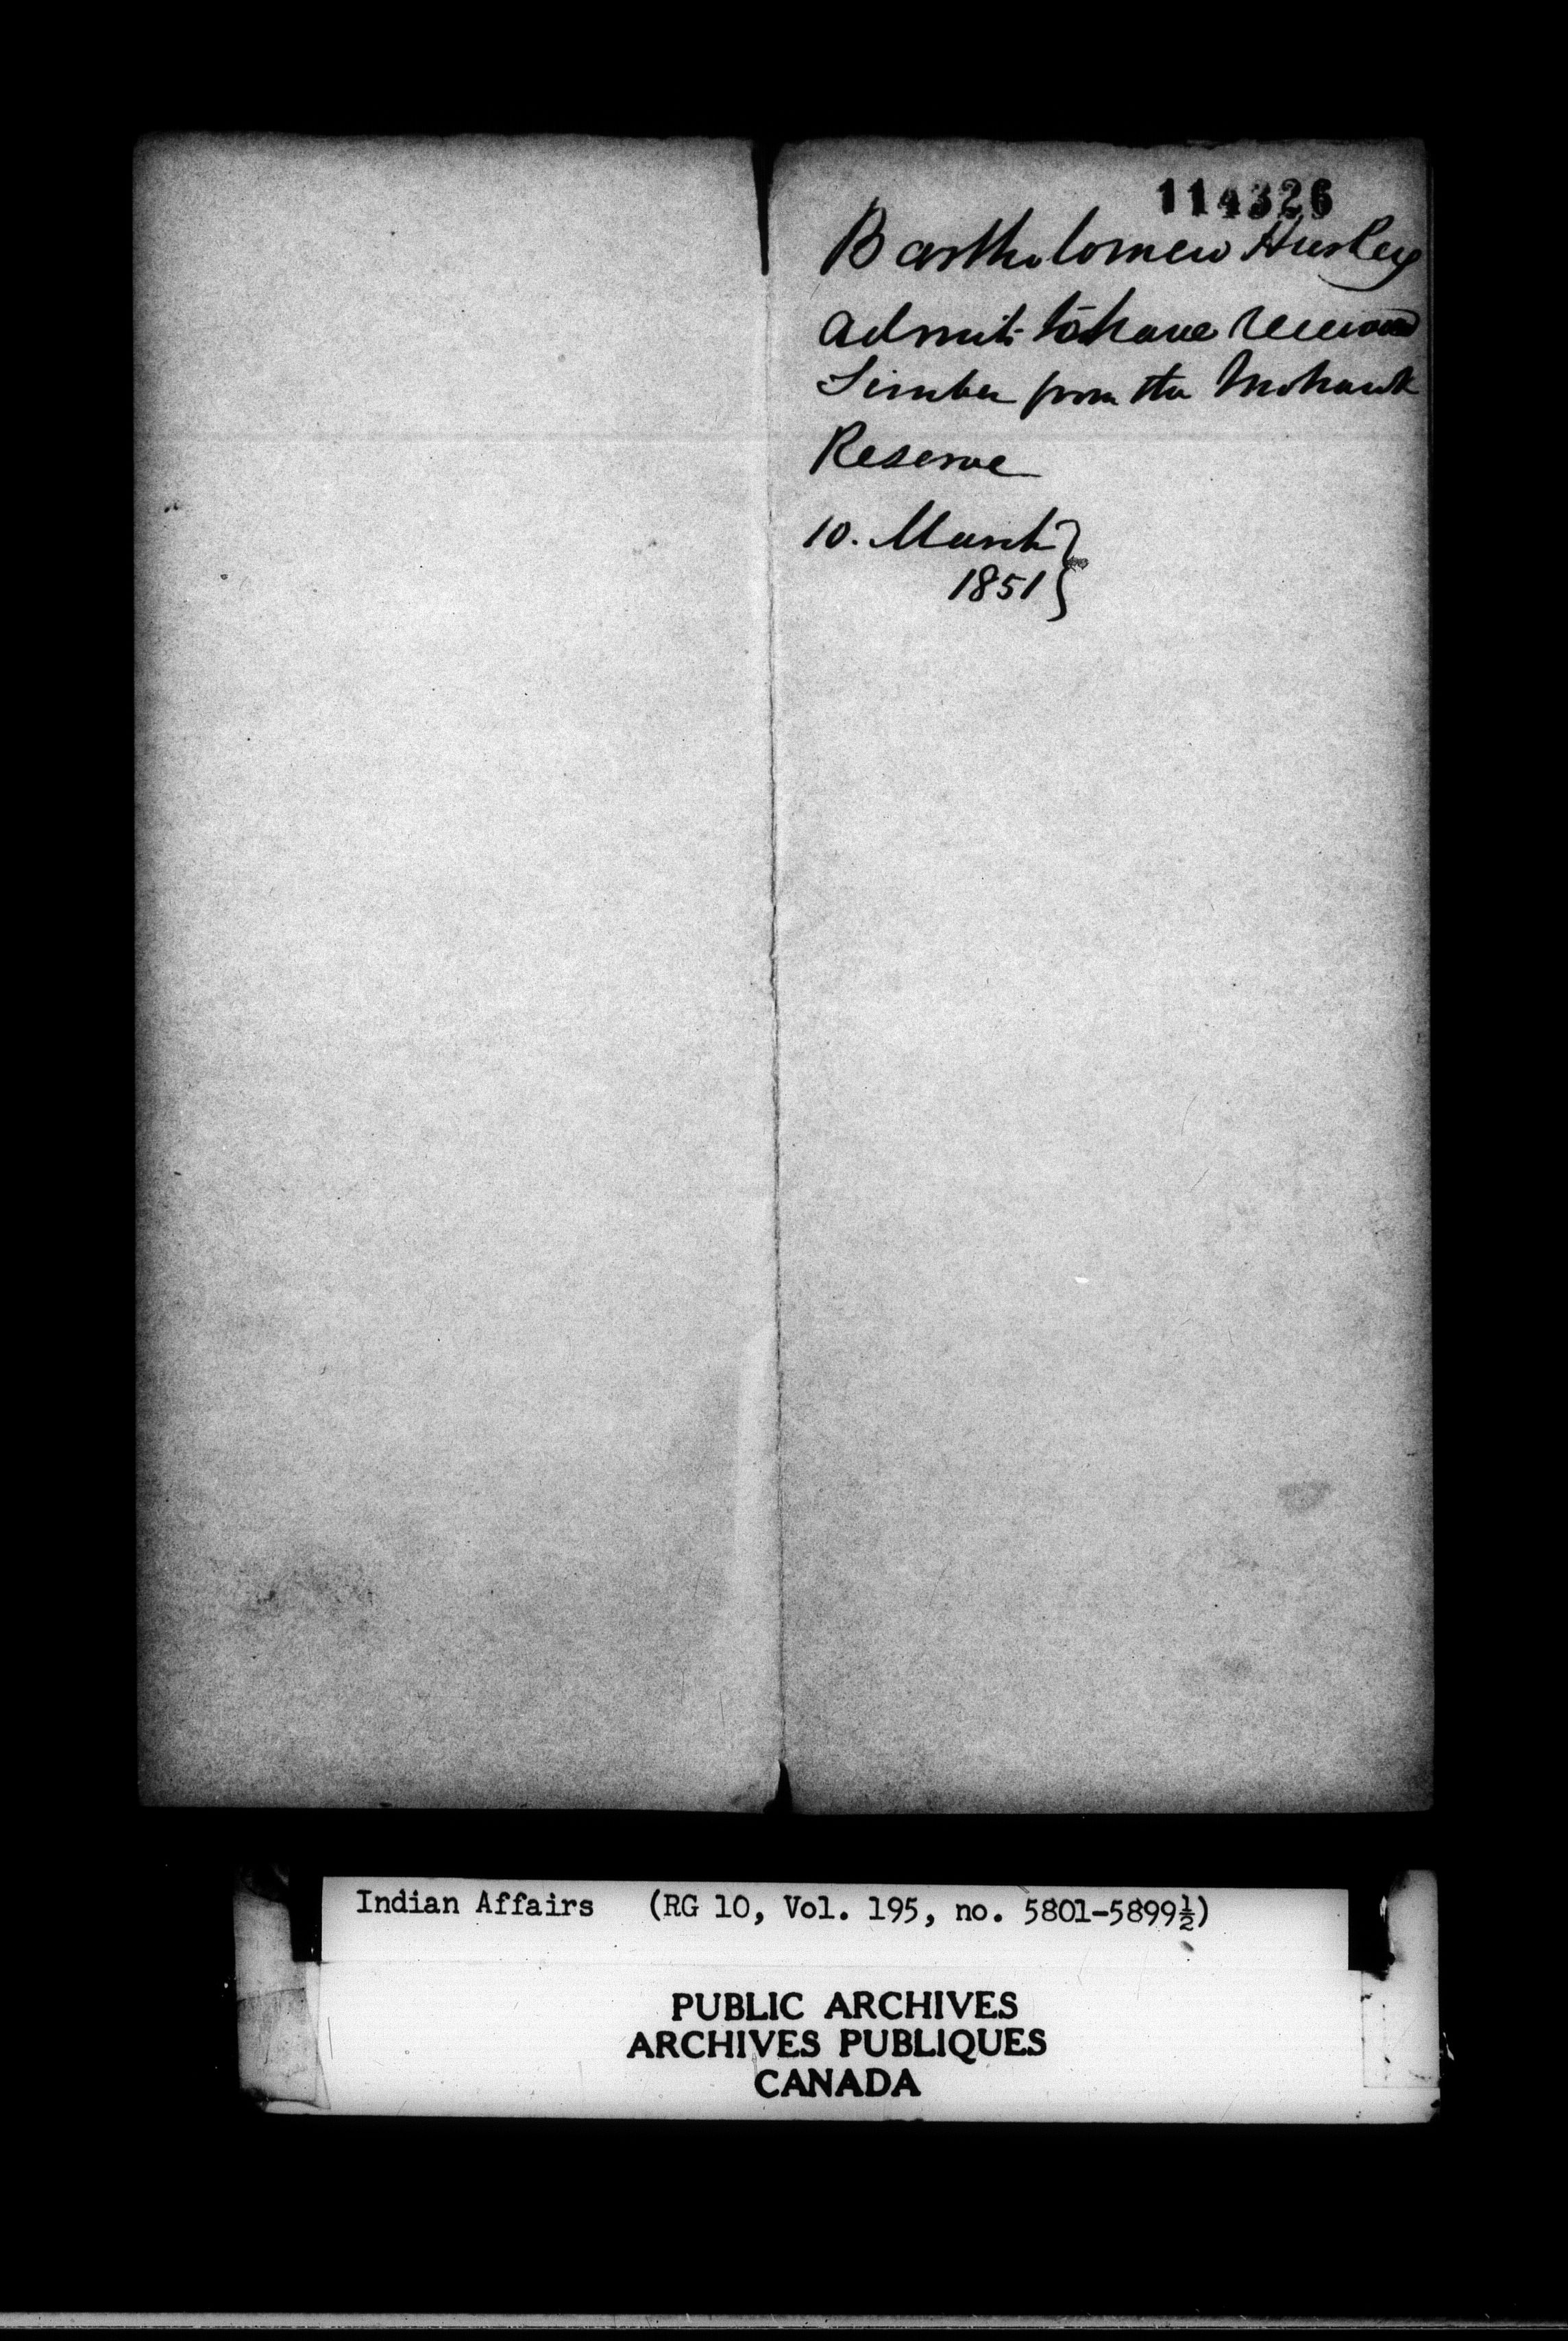 114326
Bartholomew Hurley
admits to have received
Timber from the Mohawk
Reserve
10. March
1851
Indian Affairs (RG 10, Vol. 195, no. 5801-5899½)
PUBLIC ARCHIVES
ARCHIVES PUBLIQUES
CANADA